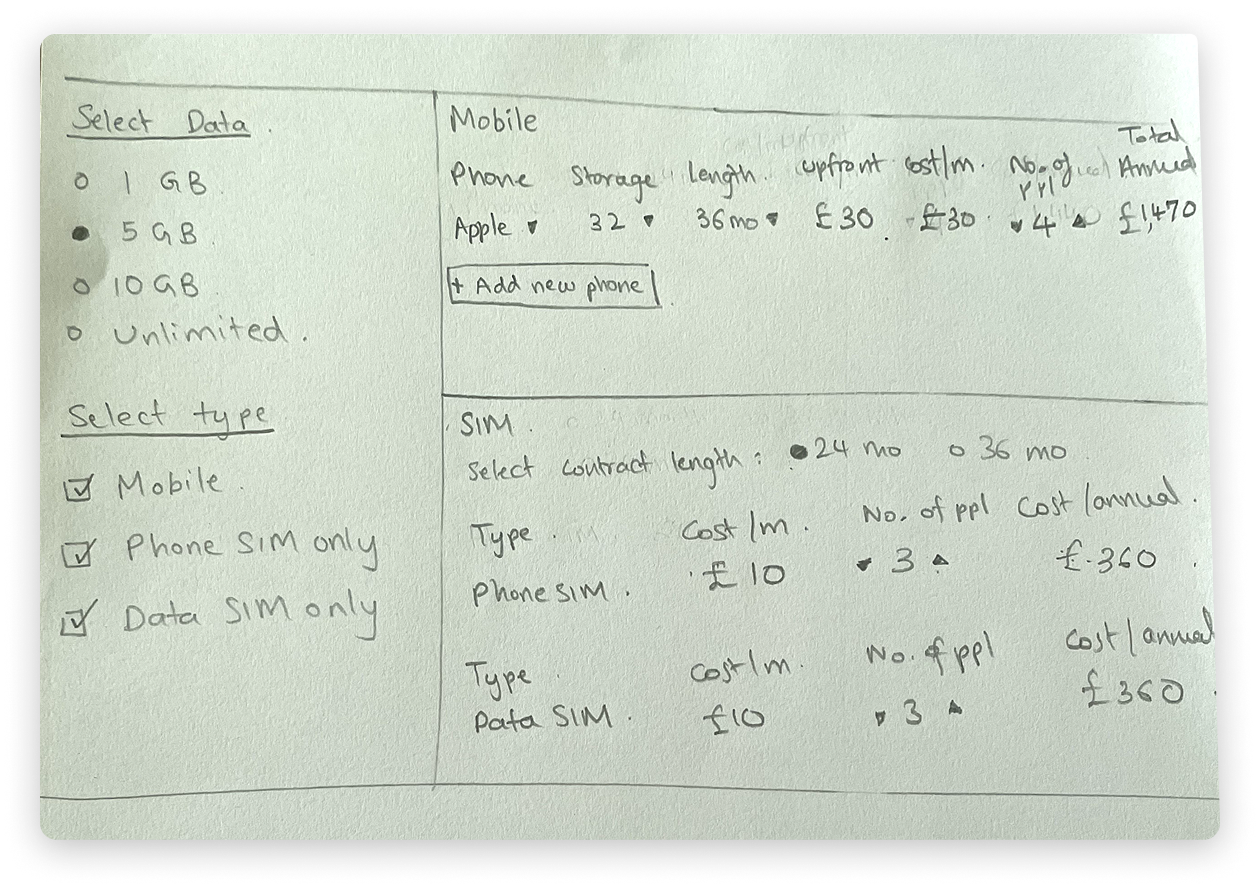 Select Data.
1 GB
5 GB.
10 GB
Unlimited.
Select type
Mobile.
Phone SIM only
Data SIM only
Mobile
Phone Storage Length. upfront Cost/m. No. of ppl Total Annual
Apple 32 36mo £30 £30 4 £1,470
+ Add new phone
SIM.
Select contract length: 24 mo 36 mo
Type. Cost/m. No. of ppl Cost/annual.
Phone SIM. £10 3 £360
Type Cost/m. No. of ppl Cost/annual
Data SIM. £10 3 £360